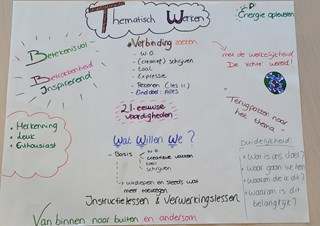 Thematisch Werken
CP!
Energie opleveren
Verbinding zoeken
- W.O
- (creatief) schrijven
- taal
- Expressie
- Rekenen
- Einddoel:
met de werkelijkheid!
De "echte wereld"!
Betekenisvol
Betrokkenheid
Inspirerend
21-eeuwse
vaardigheden
"Terugfietsen naar
het thema"
Herkenning
Leuk
Enthousiast
Wat Willen We?
- Basis
W.O
creatieve vakken
taal
schrijven
- uitdiepen en steeds wat
meer toevoegen
Duidelijkheid:
- Wat is ons doel?
- Waar gaan we heen
- Waarom
- Waarom is dit
belangrijk?
Instructielessen & Verwerkingslessen
Van binnen naar buiten en andersom